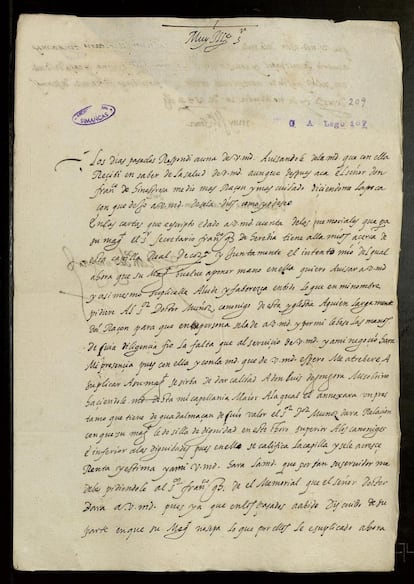 Muy Ill.e s.r
209
SIMANCAS
G A Lego 209
Los dias pasados Respondi a una de v.md. Avisandole de la md. que con ella
Reçibi en saber de la salud de v.md. aunque despues aca el señor don
fran.co de hinestrosa me dio mas Raçon y mas cuidado diciendome la poca
con que
En las cartas que e escripto e dado a v.md. cuenta de los memoriales que
su mag.d el s.r secretario fran.co g.z de heredia tiene alla mios acerca de
esta capilla Real de y juntamente el intento mio del qual
ahora que su Mag.d buelve a poner mano en ella quiero Avisar a v.md
y asi mesmo suplicalle Ayude y faborezca en todo lo que en mi nombre
pidiere Al s.r Doctor Muñoz canonigo de esta yglesia Aquien largamente
doi Raçon para que en persona se la de a v.md. y por mi le bese las manos
de cuia diligencia fio la falta que al servicio de v.md. y a mi negocio hara
Mi presencia pues con ella y con la md. que de v.md. espero Me atrebere A
suplicar A su mag.d se sirba de dar calidad A don luis de gongora Mi sobrino
haciendole md. de la mi capellania Maior A la qual el annexara un pres
tamo que tiene de guadalmaçan de cuio valor el s.r D.r Munoz dara Relaçion
con que su mag.d le de silla de dignidad en este choro superior A los canonigos
e inferior a las dignidades pues en ello se califica la capilla y se le acresce
Renta y estima y a mi v.md. hara la md. que por tan su servidor me
debe pidiendole al s.r fran.co g.z de el Memorial que el señor Doctor
dara a v.md. pues ya que en los pasados a abido Descuido de su
parte en que su Mag.d vea lo que por ellos le e suplicado ahora